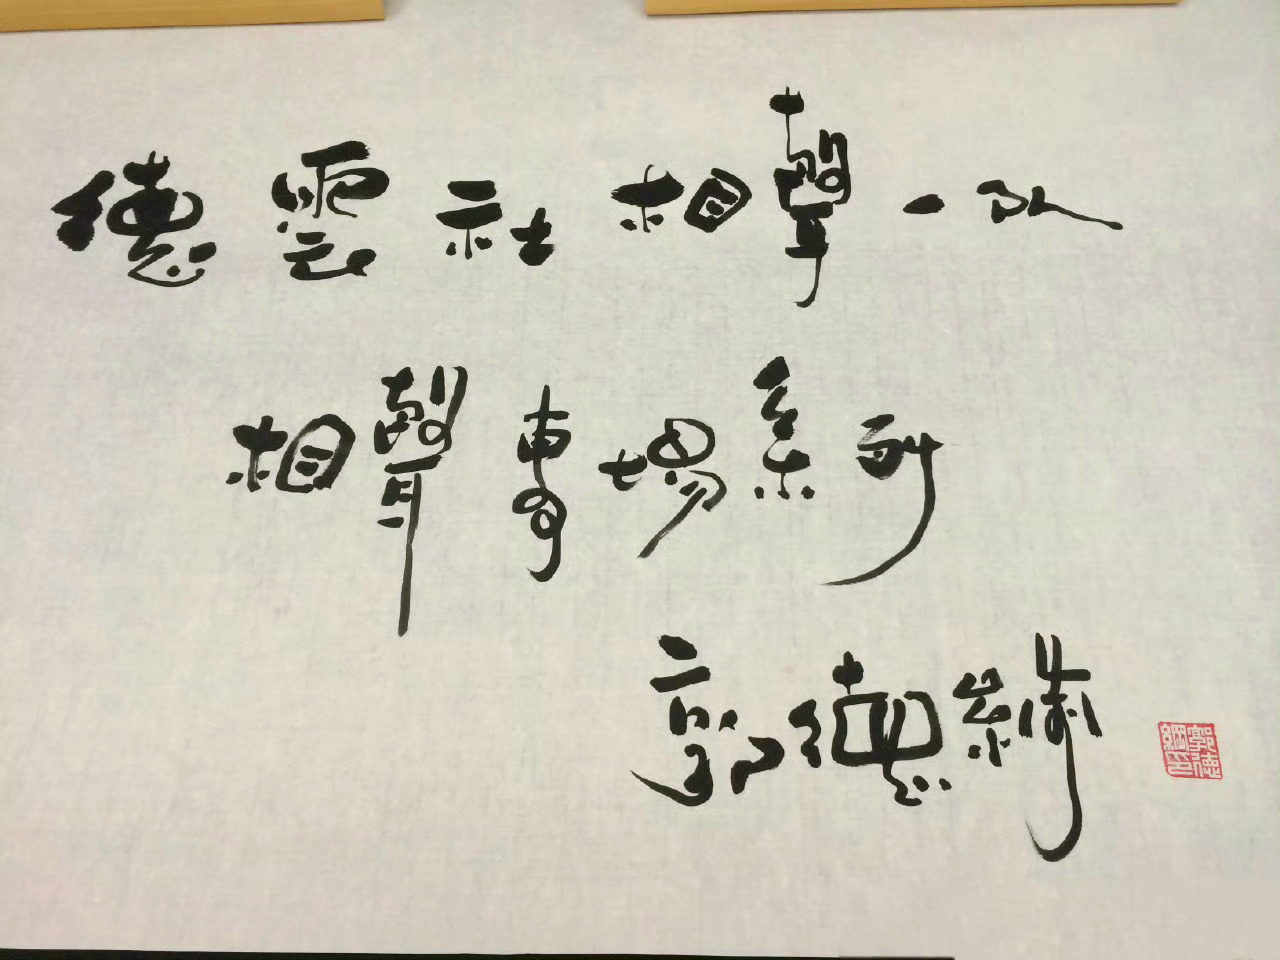 德雲社相聲一队
相聲專場系列
郭德綱
郭德綱印